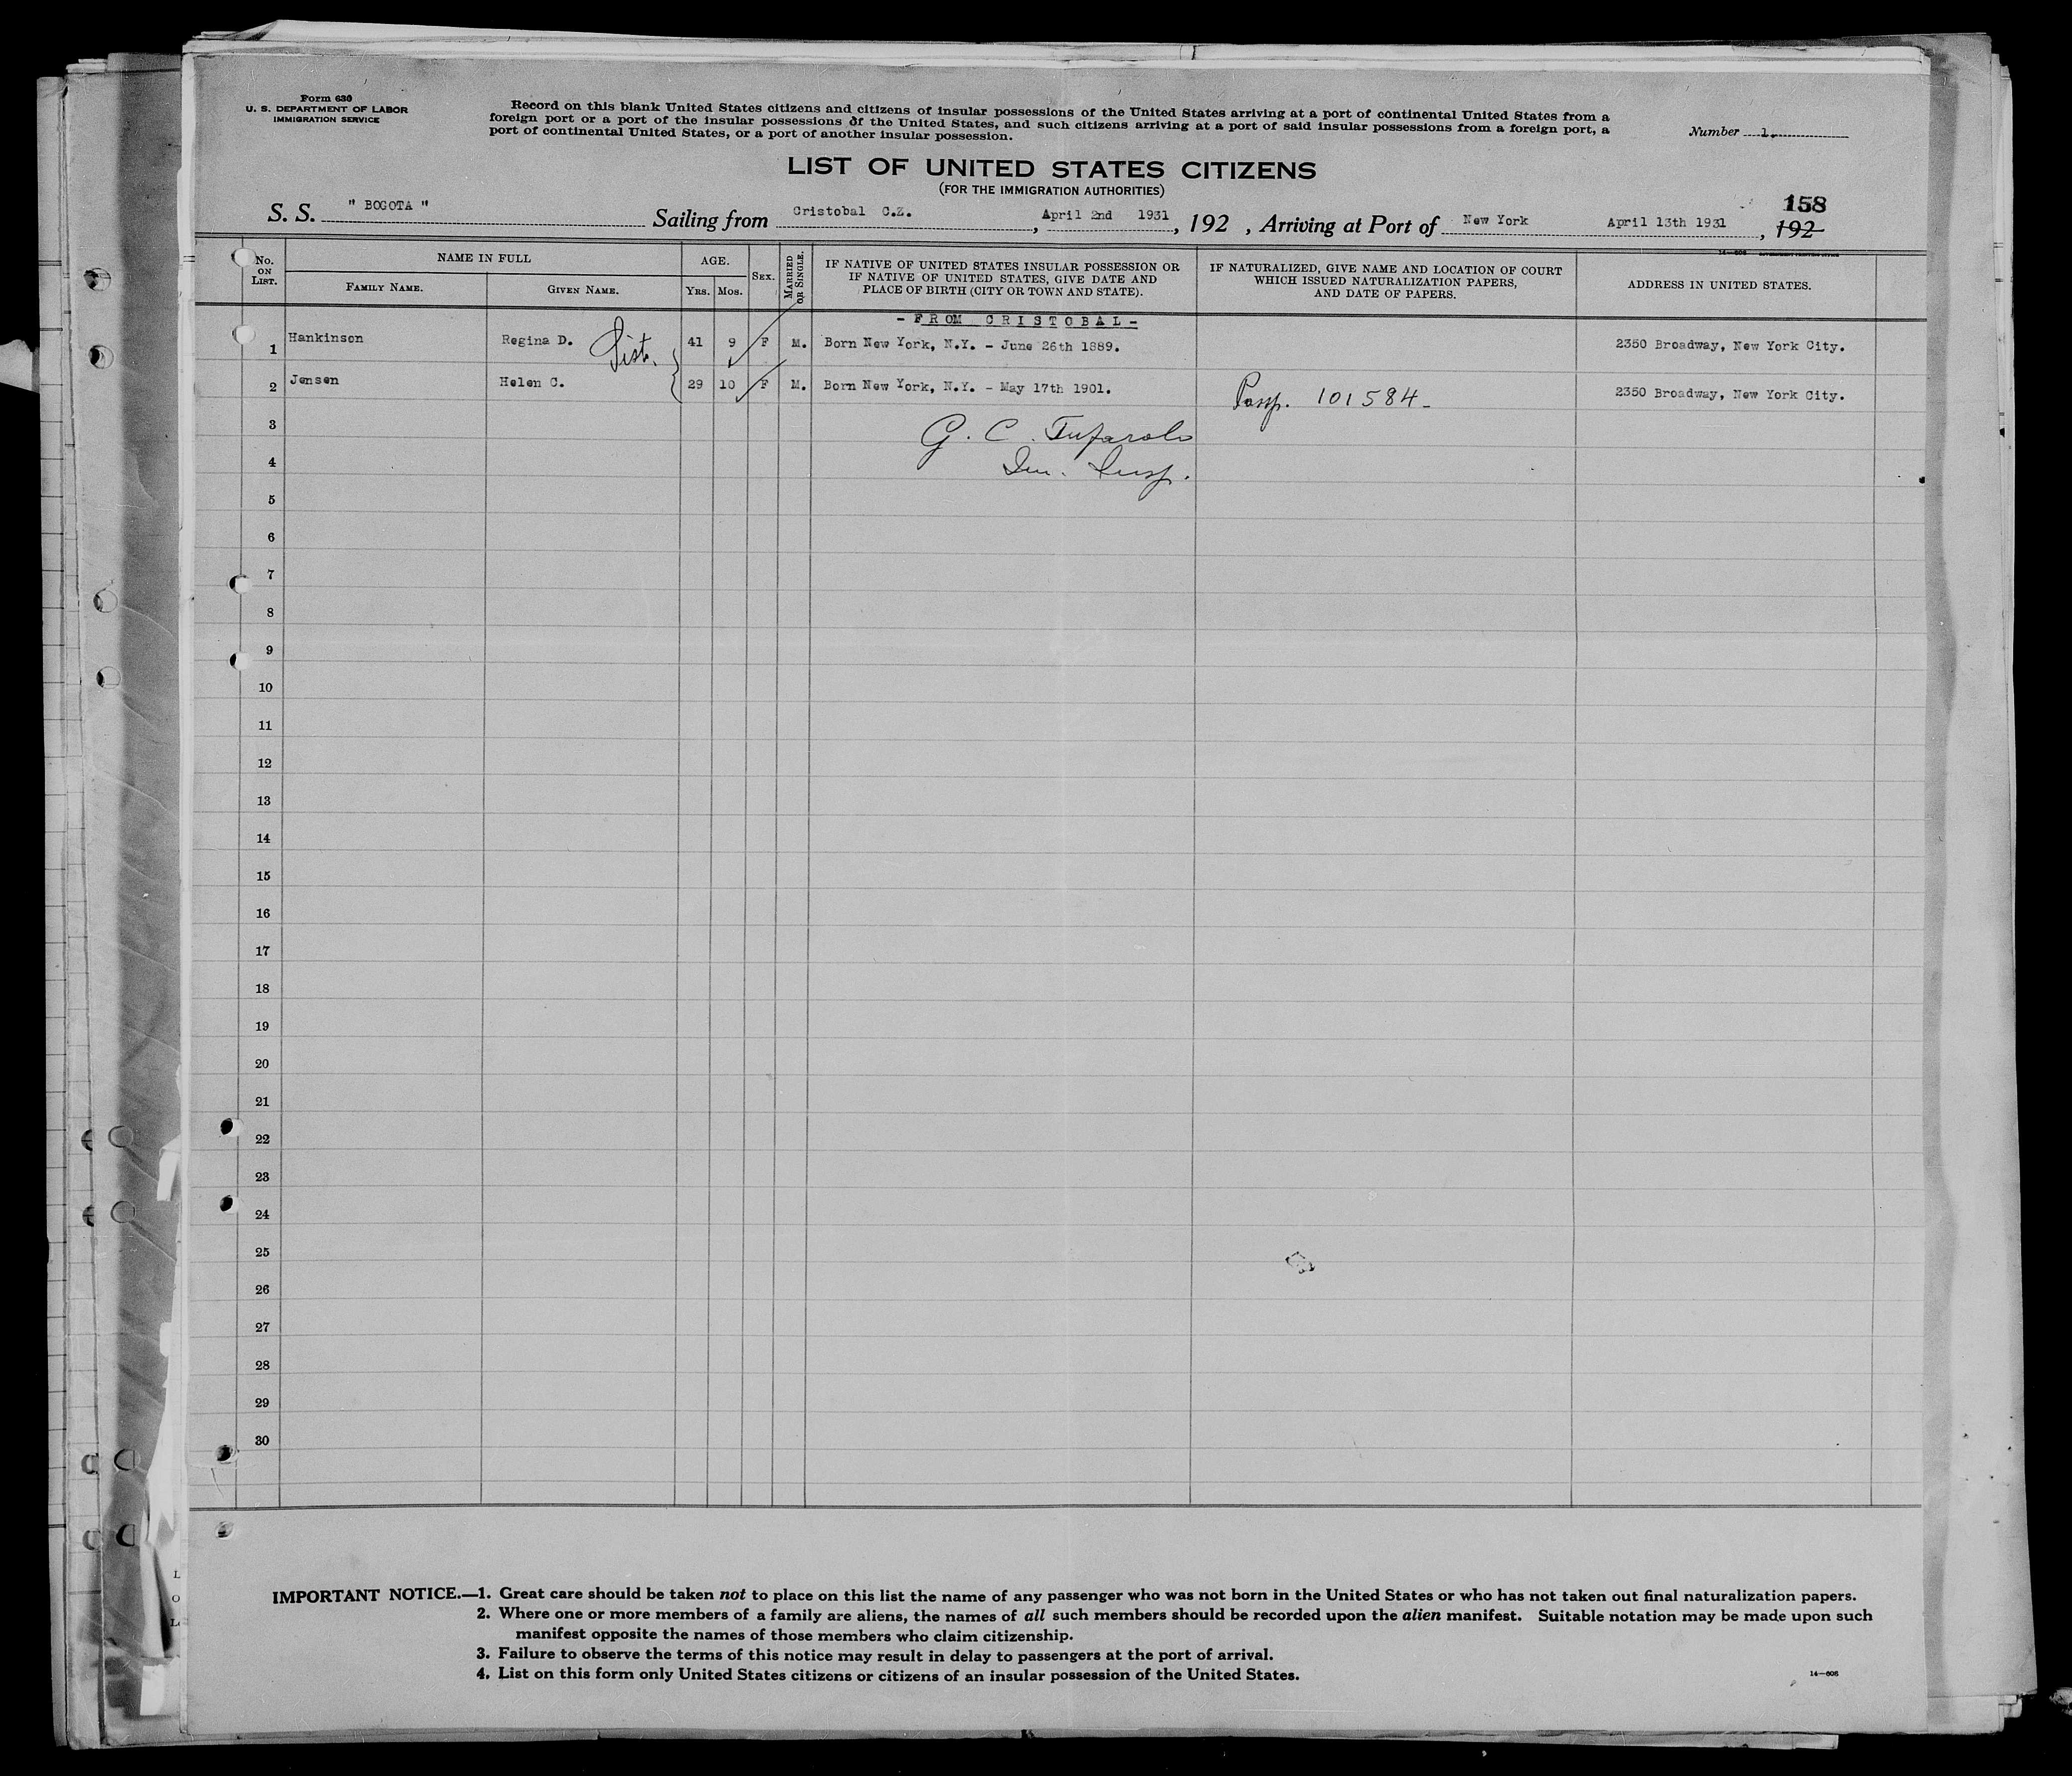 Form 630
U. S. DEPARTMENT OF LABOR
IMMIGRATION SERVICE
Record on this blank United States citizens and citizens of insular possessions of the United States arriving at a port of continental United States from a
foreign port or a port of the insular possessions of the United States, and such citizens arriving at a port of said insular possessions from a foreign port, a
port of continental United States, or a port of another insular possession.
Number 1.
LIST OF UNITED STATES CITIZENS
(FOR THE IMMIGRATION AUTHORITIES)
158
S. S. " BOGOTA " Sailing from Cristobal C.Z. , April 2nd 1931 , 192 , Arriving at Port of New York April 13th 1931 , 192
14—606
No. ON LIST. NAME IN FULL AGE. SEX. MARRIED OR SINGLE. IF NATIVE OF UNITED STATES INSULAR POSSESSION OR IF NATIVE OF UNITED STATES, GIVE DATE AND PLACE OF BIRTH (CITY OR TOWN AND STATE). IF NATURALIZED, GIVE NAME AND LOCATION OF COURT WHICH ISSUED NATURALIZATION PAPERS, AND DATE OF PAPERS. ADDRESS IN UNITED STATES.
FAMILY NAME. GIVEN NAME. YRS. MOS.
- FROM CRISTOBAL -
1 Hankinson Regina D. Sist. 41 9 F M. Born New York, N.Y. - June 26th 1889. 2350 Broadway, New York City.
2 Jensen Helen C. 29 10 F M. Born New York, N.Y. - May 17th 1901. Passp. 101584- 2350 Broadway, New York City.
3 G. C. Tufarolo
4 Im. Insp.
5
6
7
8
9
10
11
12
13
14
15
16
17
18
19
20
21
22
23
24
25
26
27
28
29
30
IMPORTANT NOTICE.—1. Great care should be taken not to place on this list the name of any passenger who was not born in the United States or who has not taken out final naturalization papers.
2. Where one or more members of a family are aliens, the names of all such members should be recorded upon the alien manifest. Suitable notation may be made upon such
manifest opposite the names of those members who claim citizenship.
3. Failure to observe the terms of this notice may result in delay to passengers at the port of arrival.
4. List on this form only United States citizens or citizens of an insular possession of the United States.
14—606